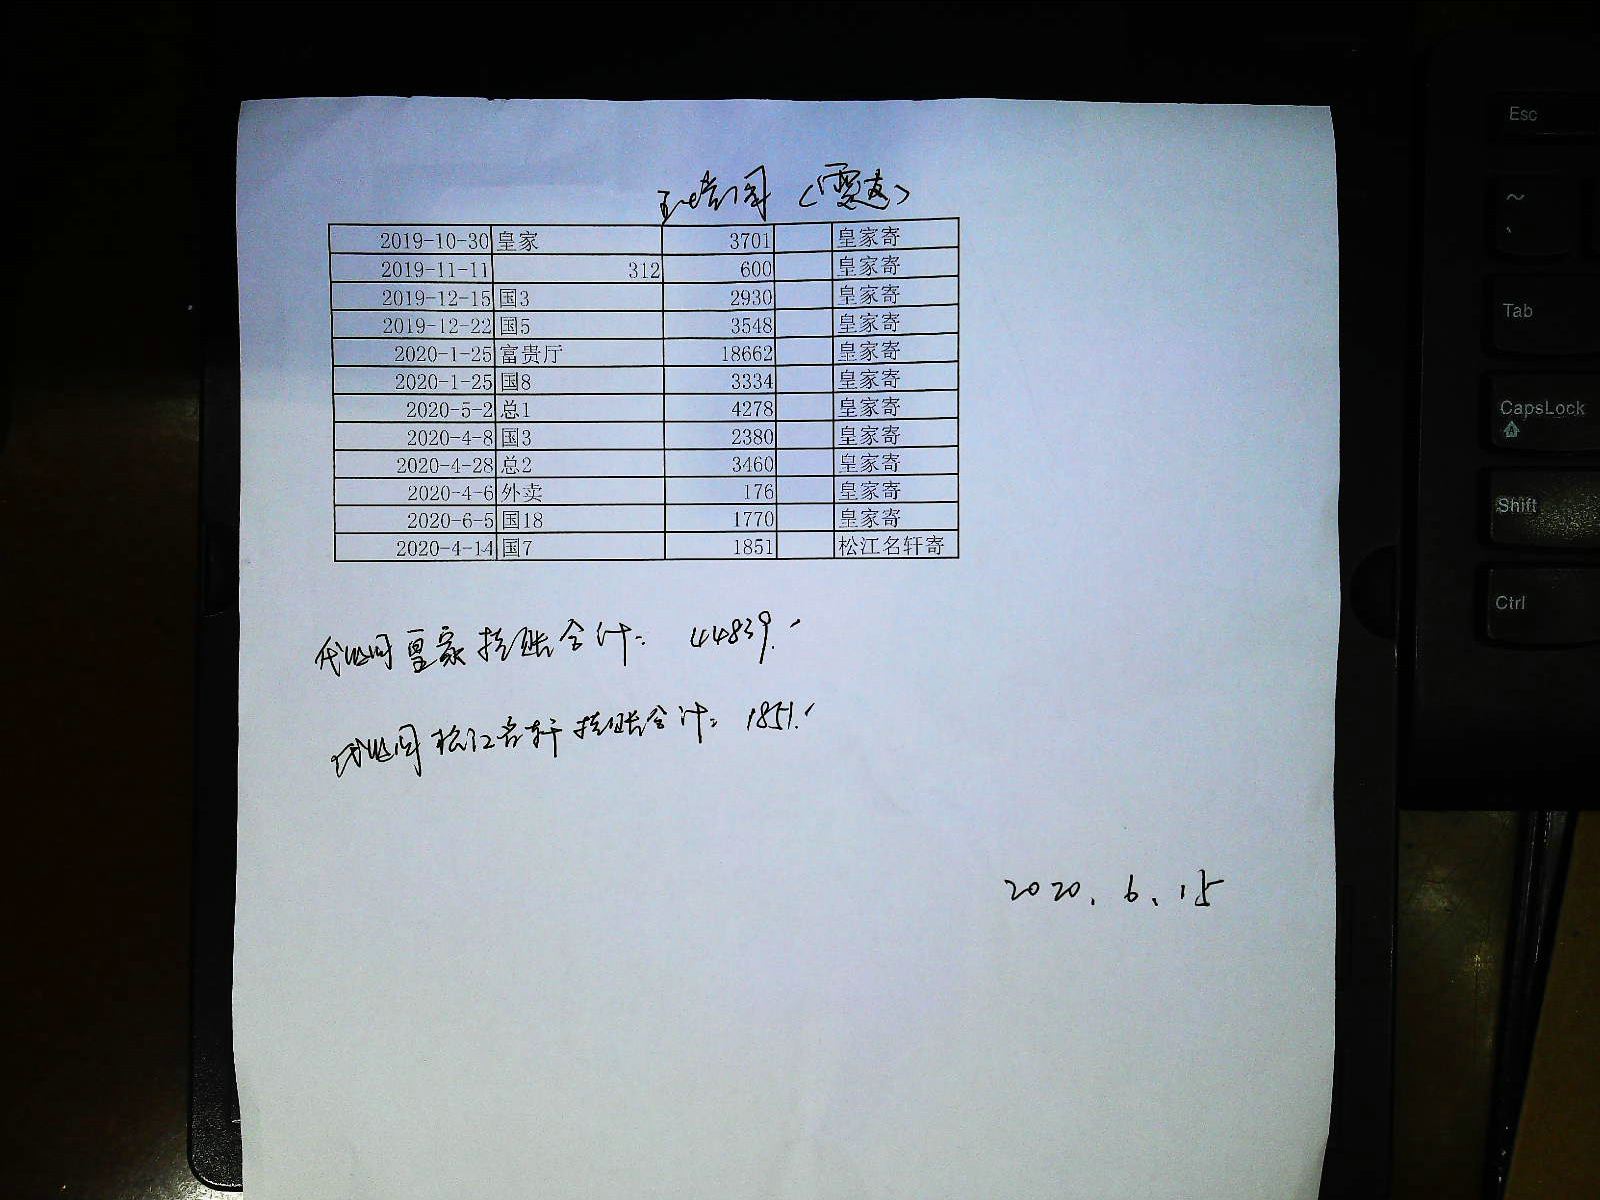 2019-10-30 皇家 3701 皇家寄
2019-11-11 312 600 皇家寄
2019-12-15 国3 2930 皇家寄
2019-12-22 国5 3548 皇家寄
2020-1-25 富贵厅 18662 皇家寄
2020-1-25 国8 3334 皇家寄
2020-5-2 总1 4278 皇家寄
2020-4-8 国3 2380 皇家寄
2020-4-28 总2 3460 皇家寄
2020-4-6 外卖 176 皇家寄
2020-6-5 国18 1770 皇家寄
2020-4-14 国7 1851 松江名轩寄
皇家挂账合计: 44839.
松江名轩挂账合计: 1851.
2020.6.15
Esc
~
Tab
CapsLock
Shift
Ctrl